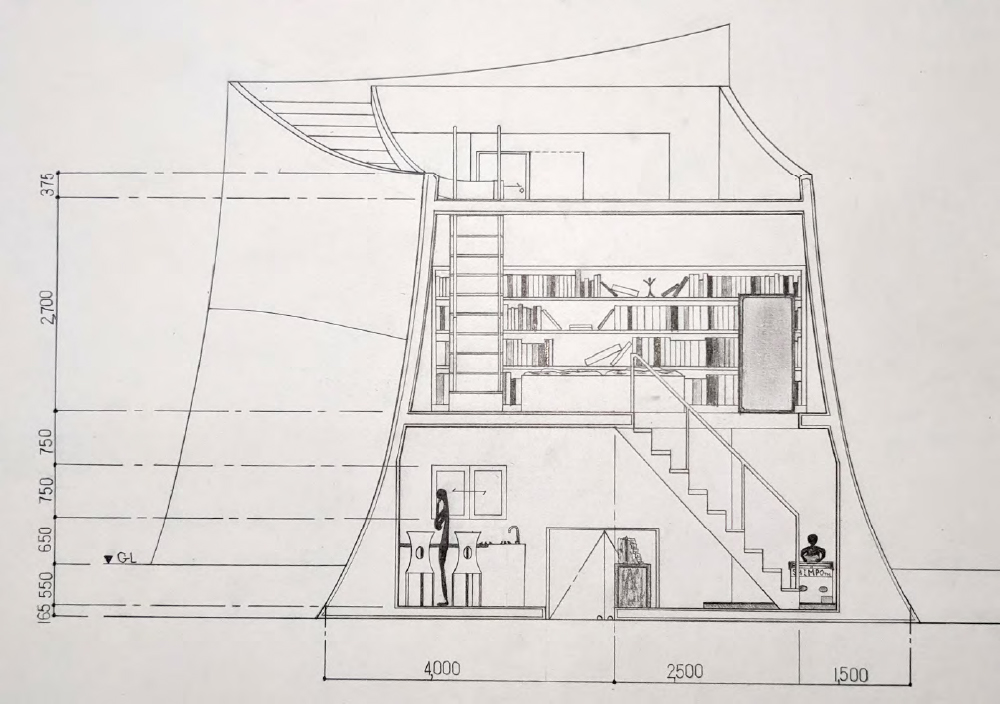 375
2,700
750
750
650
GL
550
165
SHIMPO
4,000
2,500
1,500